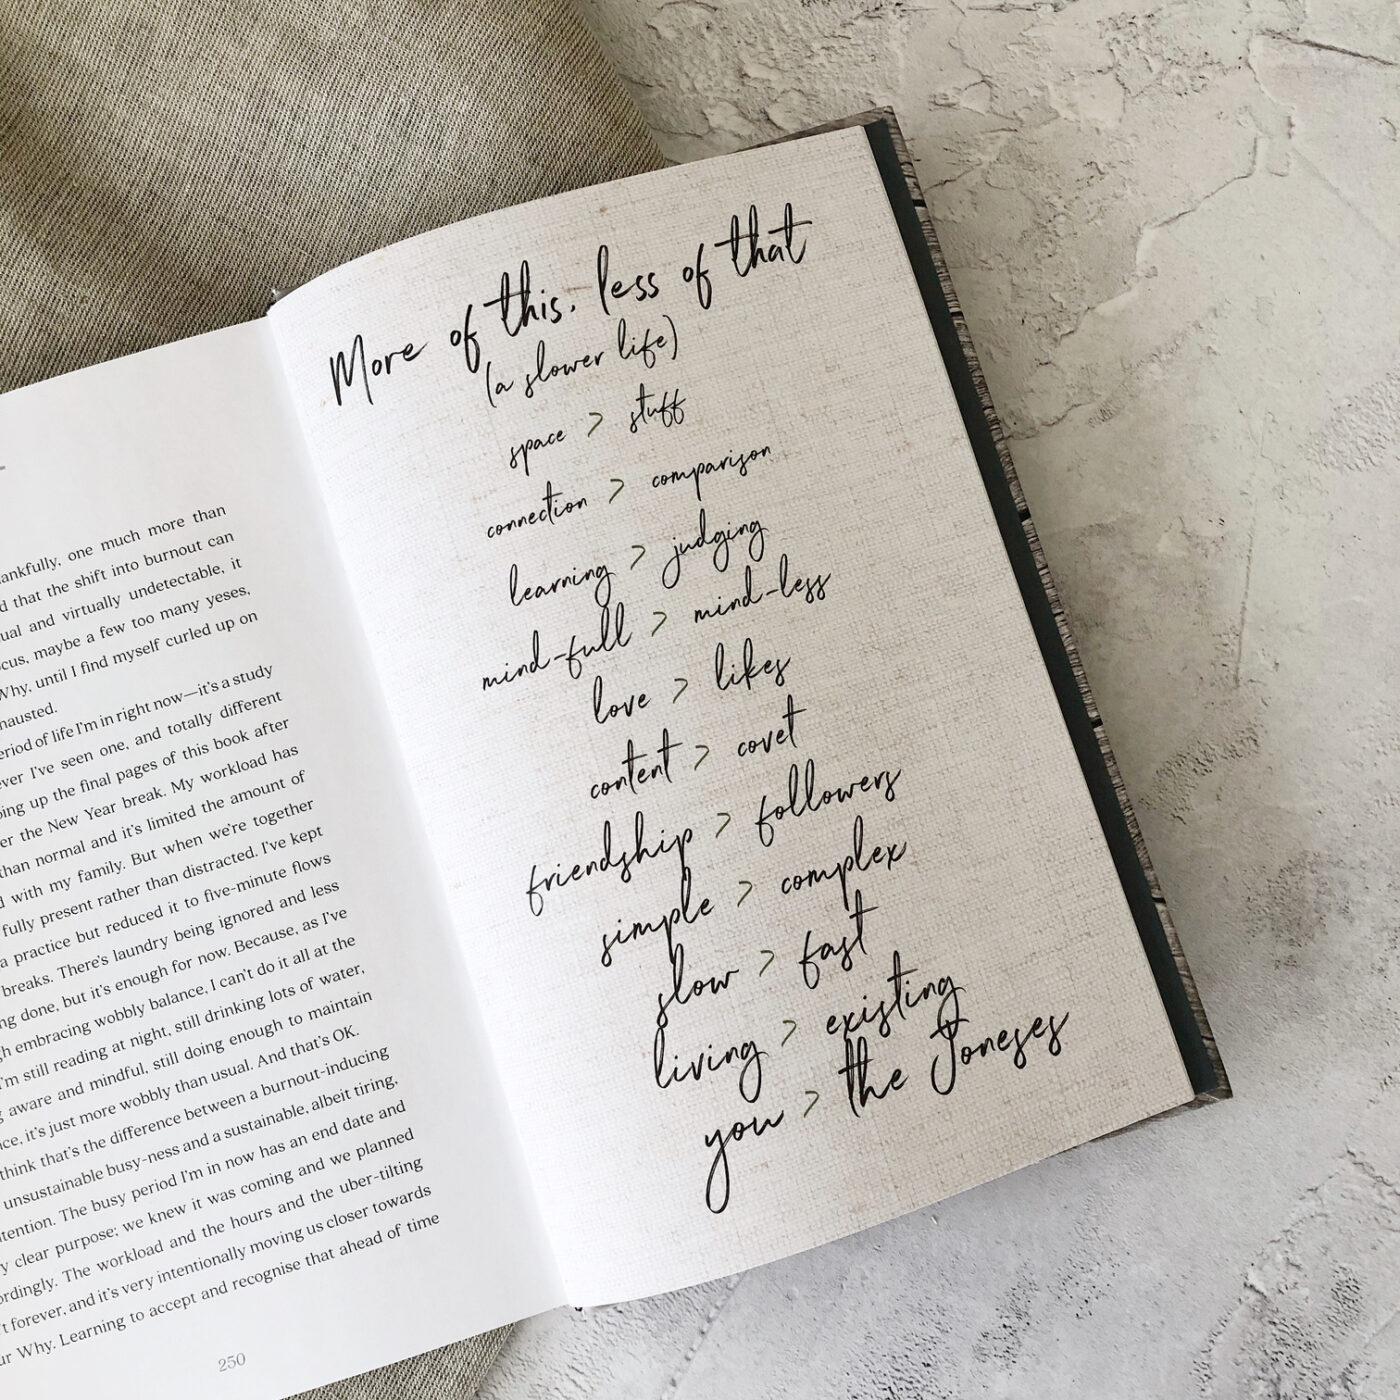 ankfully, one much more than
d that the shift into burnout can
ual and virtually undetectable, it
ocus, maybe a few too many yeses,
Why, until I find myself curled up on
hausted.
eriod of life I'm in right now—it's a study
ever I've seen one, and totally different
ping up the final pages of this book after
er the New Year break. My workload has
than normal and it's limited the amount of
d with my family. But when we're together
fully present rather than distracted. I've kept
a practice but reduced it to five-minute flows
breaks. There's laundry being ignored and less
ng done, but it's enough for now. Because, as I've
gh embracing wobbly balance, I can't do it all at the
I'm still reading at night, still drinking lots of water,
g aware and mindful, still doing enough to maintain
nce, it's just more wobbly than usual. And that's OK.
think that's the difference between a burnout-inducing
unsustainable busy-ness and a sustainable, albeit tiring,
tention. The busy period I'm in now has an end date and
y clear purpose; we knew it was coming and we planned
ordingly. The workload and the hours and the uber-tilting
't forever, and it's very intentionally moving us closer towards
ur Why. Learning to accept and recognise that ahead of time
250
More of this, less of that
(a slower life)
space > stuff
connection > comparison
learning > judging
mind-full > mind-less
love > likes
content > covet
friendship > followers
simple > complex
slow > fast
living > existing
you > the Joneses